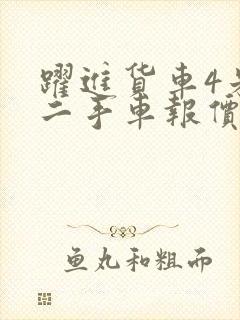 躍進货車4
二手車報價
鱼丸和粗面